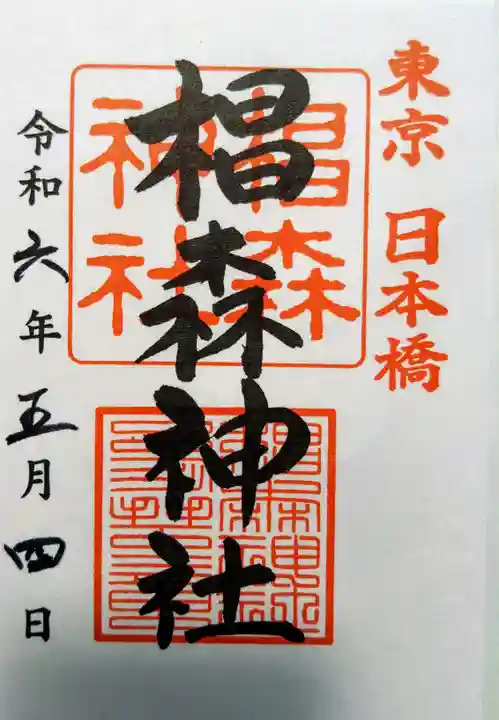 東京 日本橋
椙森神社
椙森神社
令和六年五月四日